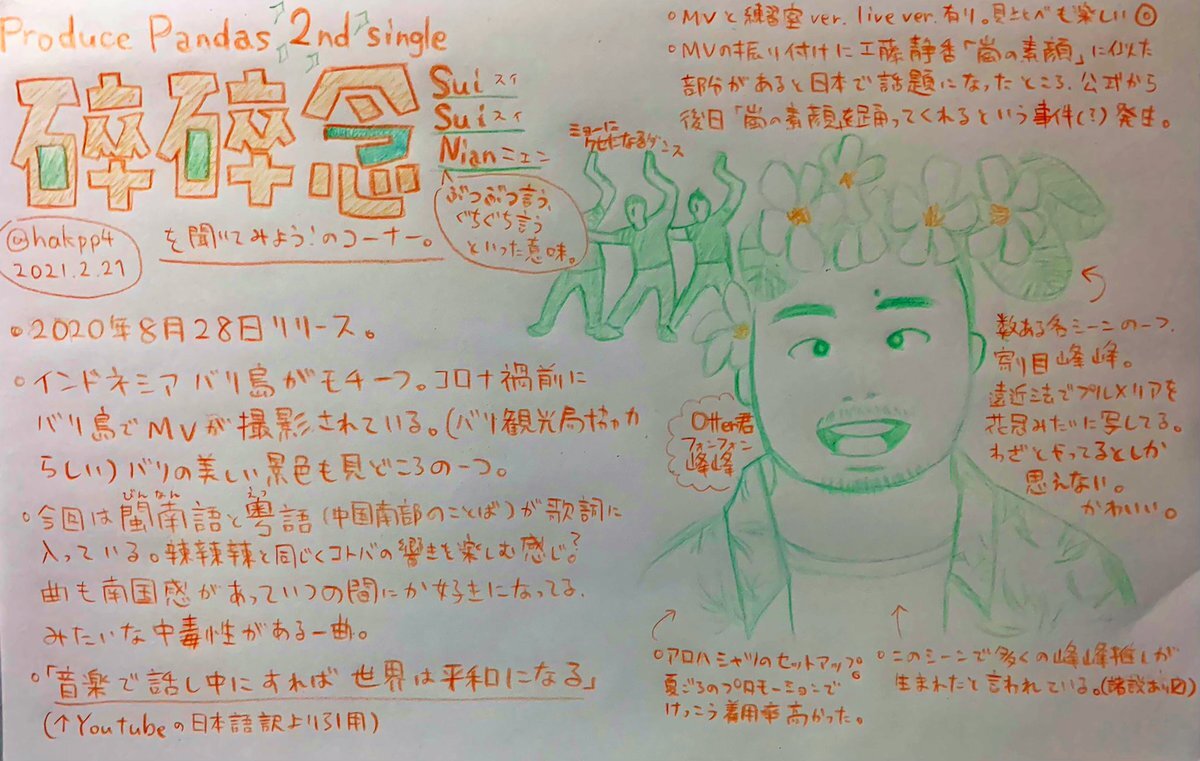 Produce Pandas 2nd single
碎碎念
Sui スイ
Sui スイ
Nian ニェン
ぶつぶつ言う、
ぐちぐち言う
といった意味。
@hakpp4
2021.2.27
を聞いてみよう!のコーナー。
・2020年8月28日リリース。
・インドネシア バリ島がモチーフ。コロナ禍前に
バリ島でMVが撮影されている。(バリ観光局協力
らしい)バリの美しい景色も見どころの一つ。
・今回は閩南語と粤語(中国南部のことば)が歌詞に
びんなん
えつ
入っている。辣辣辣と同じくコトバの響きを楽しむ感じ?
曲も南国感があっていつの間にか好きになってる、
みたいな中毒性がある一曲。
・「音楽で話し中にすれば世界は平和になる」
(↑Youtubeの日本語訳より引用)
・MVと練習室ver. live ver.有り。見比べも楽しい◎
・MVの振り付けに工藤静香「嵐の素顔」に似た
部分があると日本で話題になったところ、公式から
後日「嵐の素顔」を踊ってくれるという事件(?)発生。
ミョーに
クセになるダンス
Otter君
フォンフォン
峰峰
数ある名シーンの一つ、
寄り目峰峰。
遠近法でプルメリアを
花冠みたいに写してる。
わざとやってるとしか
思えない。
かわいい。
・アロハシャツのセットアップ。
夏ごろのプロモーションで
けっこう着用率高かった。
・このシーンで多くの峰峰推しが
生まれたと言われている。(諸説あり)